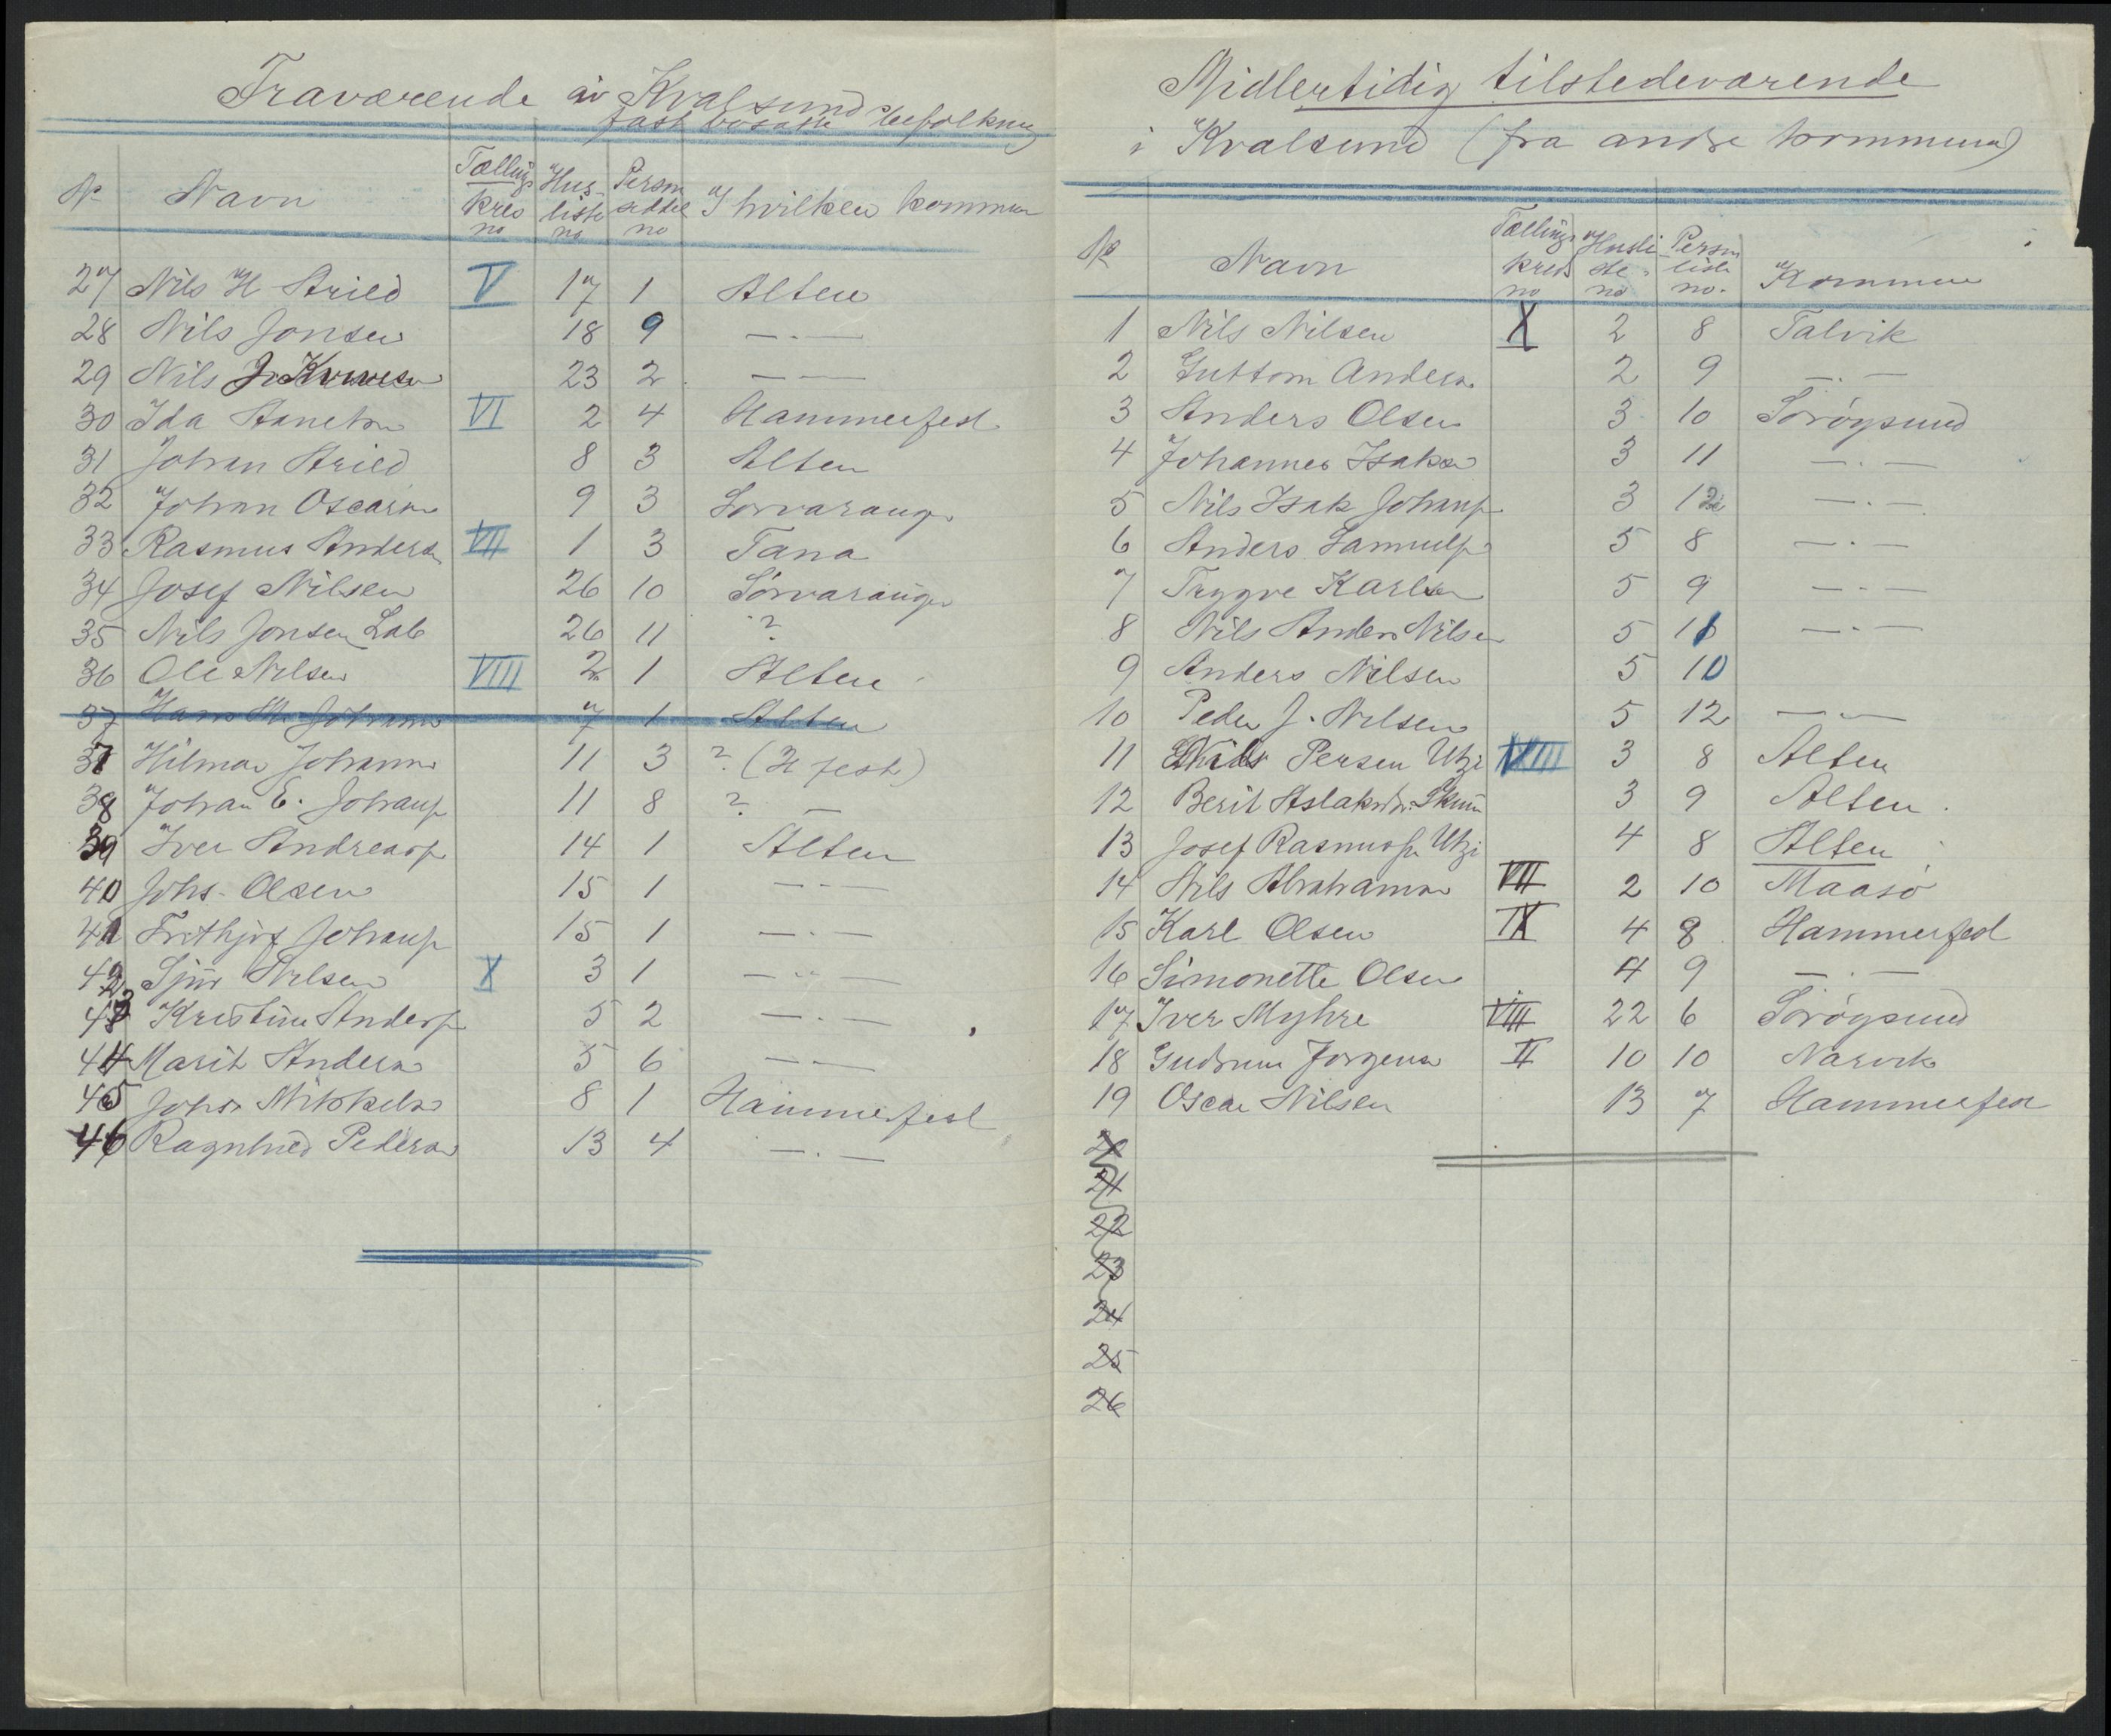 Fraværende av Kvalsund
fast bosatte befolkning
No Navn Tællings kres no Husliste no Person seddel no I hvilken kommune
27 Nils H Aried V 17 1 Alten
28 Nils Jonsen 18 9 —.—
29 Nils 23 2 ——
30 Ida VI 2 4 Hammerfest
31 Johan Aried 8 3 Alten
32 Johan Oscarsen 9 3 Sørvaranger
33 Rasmus Andersen VII 1 3 Tana
34 Josef Nilsen 26 10 Sørvaranger
35 Nils Jonsen Lab 26 11 ?
36 Ole Nilsen VIII 2 1 Alten
37 Hans Johannes 7 1 Alten
37 Hilmar Johannes 11 3 ? (H fest)
38 Johan E. Johansen 11 8 ? —
39 Iver Andreasen 14 1 Alten
40 Johs. Olsen 15 1 ——
41 Frithjof Johansen 15 1 —.—
42 Nilsen X 3 1 ——
43 Kristine Anders 5 2 —.—
44 Marit Anders 5 6 ——
45 Johs. Mikkels 8 1 Hammerfest
46 Ragnhild Peders 13 4 —.—
Midlertidig tilstedeværende
i Kvalsund (fra andre kommuner)
No Navn Tællings kreds no Husliste no Person liste no. Kommune
1 Nils Nilsen X 2 8 Talvik
2 Guttorm Anders 2 9 —.—
3 Anders Olsen 3 10 Sørøysund
4 Johannes Isaks 3 11 —.—
5 Nils Isak Johansen 3 12 —.—
6 Anders Samuels 5 8 —.—
7 Trygve Karlsen 5 9 —.—
8 Nils Anders Nilsen 5 11 —.—
9 Anders Nilsen 5 10
10 Peder J. Nilsen 5 12 ——
11 Nils Persen Utzi VIII 3 8 Alten
12 Berit Aslaksdtr. 3 9 Alten
13 Josef Rasmus Utzi 4 8 Alten
14 Nils Abrahams VII 2 10 Maasø
15 Karl Olsen IX 4 8 Hammerfest
16 Simonette Olsen 4 9 —.—
17 Iver Myhre VIII 22 6 Sørøysund
18 Gudrun Jørgens II 10 10 Narvik
19 Oscar Nilsen 13 7 Hammerfest
20
21
22
23
24
25
26